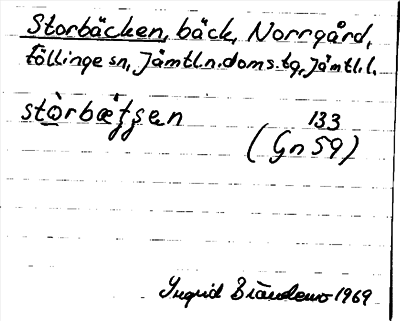 Storbäcken, bäck, Norrgård,
Föllinge sn, Jämtl.n.doms.tg, Jämtl.l.
stòrbæt̡s̡en
133
(Gn 59)
Ingrid Brändemo 1969